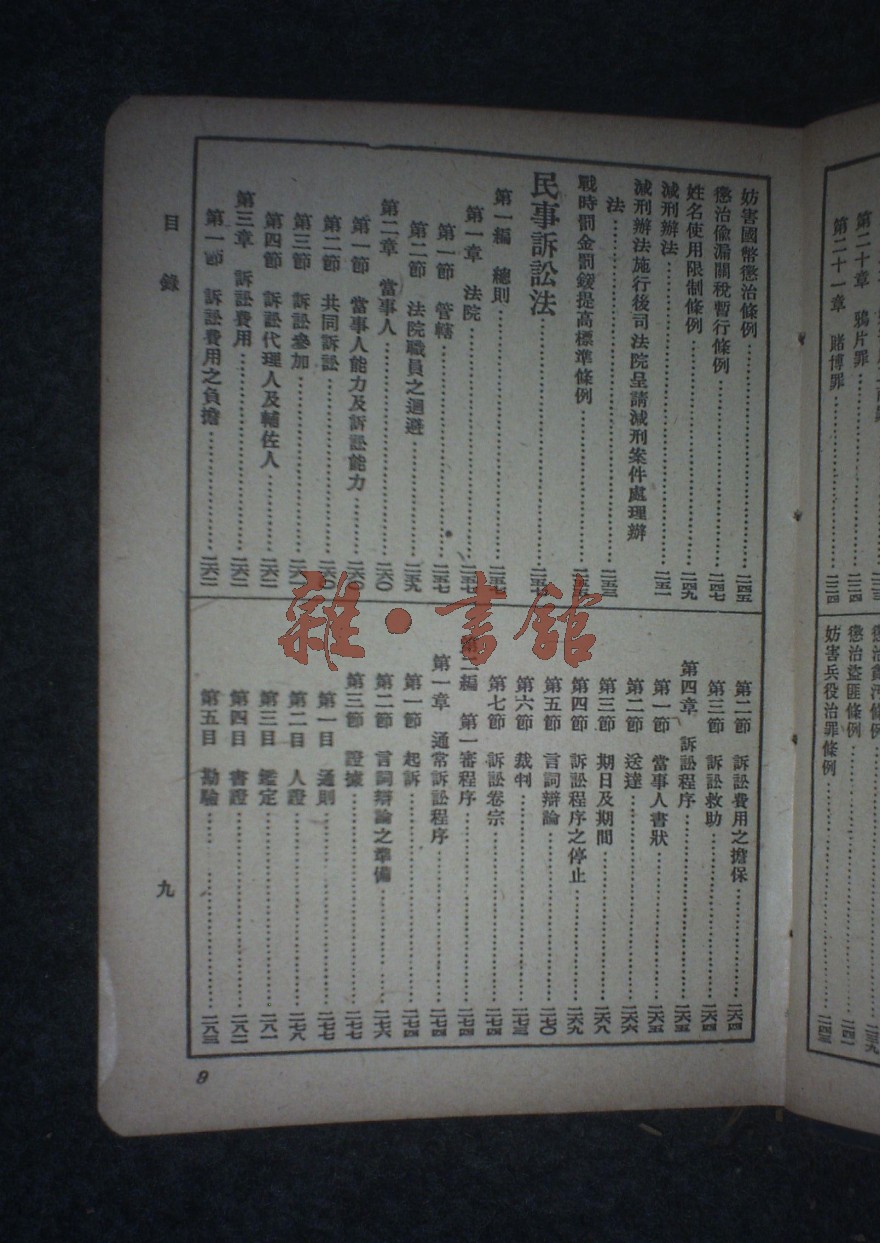 妨害國幣懲治條例……二四五
懲治偸漏關稅暫行條例……二四七
姓名使用限制條例……二四九
減刑辦法……二五一
減刑辦法施行後司法院呈請減刑案件處理辦
法……二五三
戰時罰金罰鍰提高標準條例……二五五
民事訴訟法……二五七
第一編 總則……二五七
第一章 法院……二五七
第一節 管轄……二五七
第二節 法院職員之迴避……二五九
第二章 當事人……二六〇
第一節 當事人能力及訴訟能力……二六〇
第二節 共同訴訟……二六〇
第三節 訴訟參加……二六一
第四節 訴訟代理人及輔佐人……二六二
第三章 訴訟費用……二六二
第一節 訴訟費用之負擔……二六二
第二節 訴訟費用之擔保……二六四
第三節 訴訟救助……二六四
第四章 訴訟程序……二六五
第一節 當事人書狀……二六五
第二節 送達……二六六
第三節 期日及期間……二六八
第四節 訴訟程序之停止……二六九
第五節 言詞辯論……二七〇
第六節 裁判……二七三
第七節 訴訟卷宗……二七四
第二編 第一審程序……二七四
第一章 通常訴訟程序……二七四
第一節 起訴……二七四
第二節 言詞辯論之準備……二七六
第三節 證據……二七七
第一目 通則……二七七
第二目 人證……二七八
第三目 鑑定……二八一
第四目 書證……二八二
第五目 勘驗……二八三
目錄
九
9
雜·書館
第二十章 鴉片罪……二二四
第二十一章 賭博罪……二二四
懲治貪污條例……二三九
懲治盜匪條例……二四一
妨害兵役治罪條例……二四三